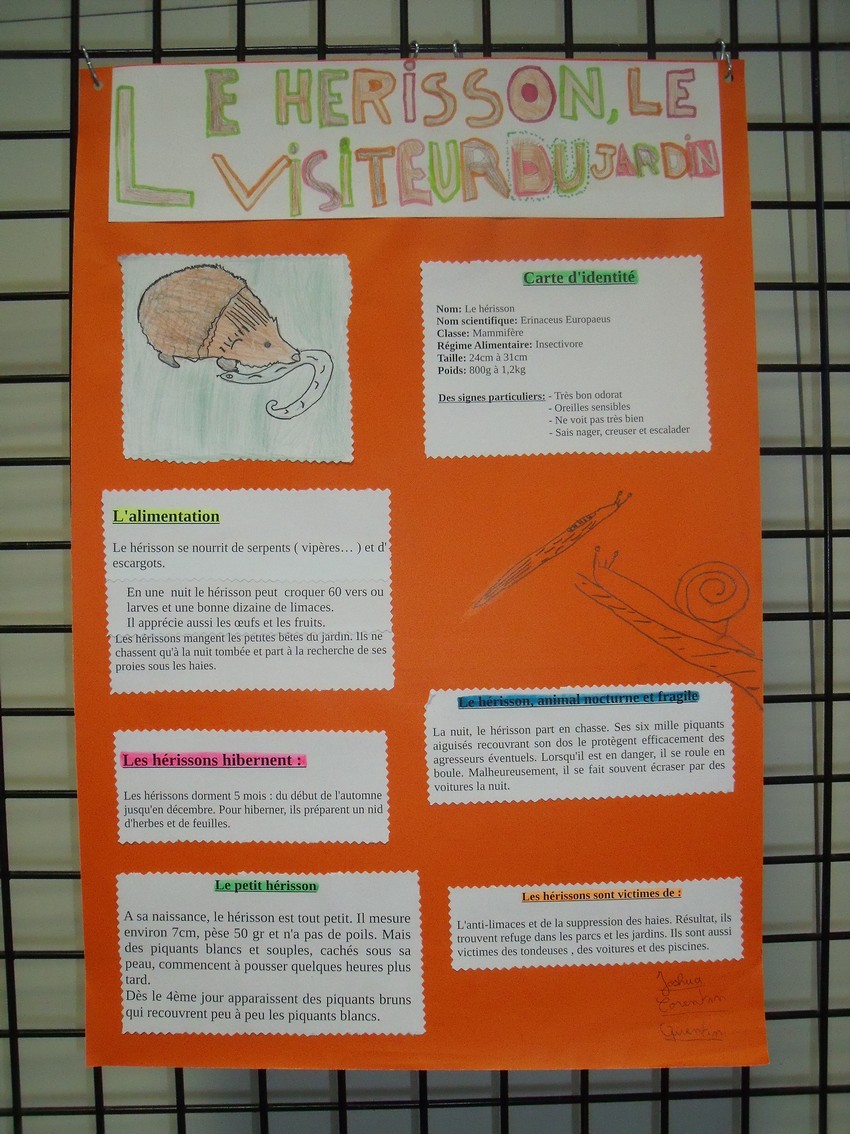 LE HERISSON, LE
VISITEUR DU JARDIN
Carte d'identité
Nom: Le hérisson
Nom scientifique: Erinaceus Europaeus
Classe: Mammifère
Régime Alimentaire: Insectivore
Taille: 24cm à 31cm
Poids: 800g à 1,2kg
Des signes particuliers: - Très bon odorat
- Oreilles sensibles
- Ne voit pas très bien
- Sais nager, creuser et escalader
L'alimentation
Le hérisson se nourrit de serpents ( vipères… ) et d'
escargots.
En une nuit le hérisson peut croquer 60 vers ou
larves et une bonne dizaine de limaces.
Il apprécie aussi les œufs et les fruits.
Les hérissons mangent les petites bêtes du jardin. Ils ne
chassent qu'à la nuit tombée et part à la recherche de ses
proies sous les haies.
Le hérisson, animal nocturne et fragile
La nuit, le hérisson part en chasse. Ses six mille piquants
aiguisés recouvrant son dos le protègent efficacement des
agresseurs éventuels. Lorsqu'il est en danger, il se roule en
boule. Malheureusement, il se fait souvent écraser par des
voitures la nuit.
Les hérissons hibernent :
Les hérissons dorment 5 mois : du début de l'automne
jusqu'en décembre. Pour hiberner, ils préparent un nid
d'herbes et de feuilles.
Le petit hérisson
A sa naissance, le hérisson est tout petit. Il mesure
environ 7cm, pèse 50 gr et n'a pas de poils. Mais
des piquants blancs et souples, cachés sous sa
peau, commencent à pousser quelques heures plus
tard.
Dès le 4ème jour apparaissent des piquants bruns
qui recouvrent peu à peu les piquants blancs.
Les hérissons sont victimes de :
L'anti-limaces et de la suppression des haies. Résultat, ils
trouvent refuge dans les parcs et les jardins. Ils sont aussi
victimes des tondeuses , des voitures et des piscines.
Joshua
Corentin
Quentin